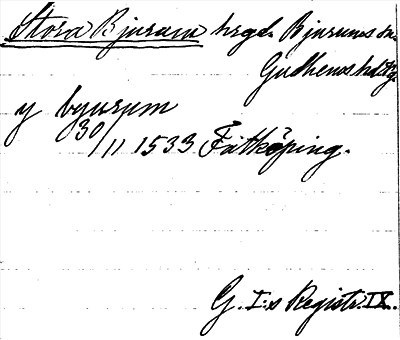 Stora Bjurum hrgd. Bjurums sn.
Gudhems hd Vg.
y byurum
30/11 1533 Falköping.
G. I:s Registr. IX.